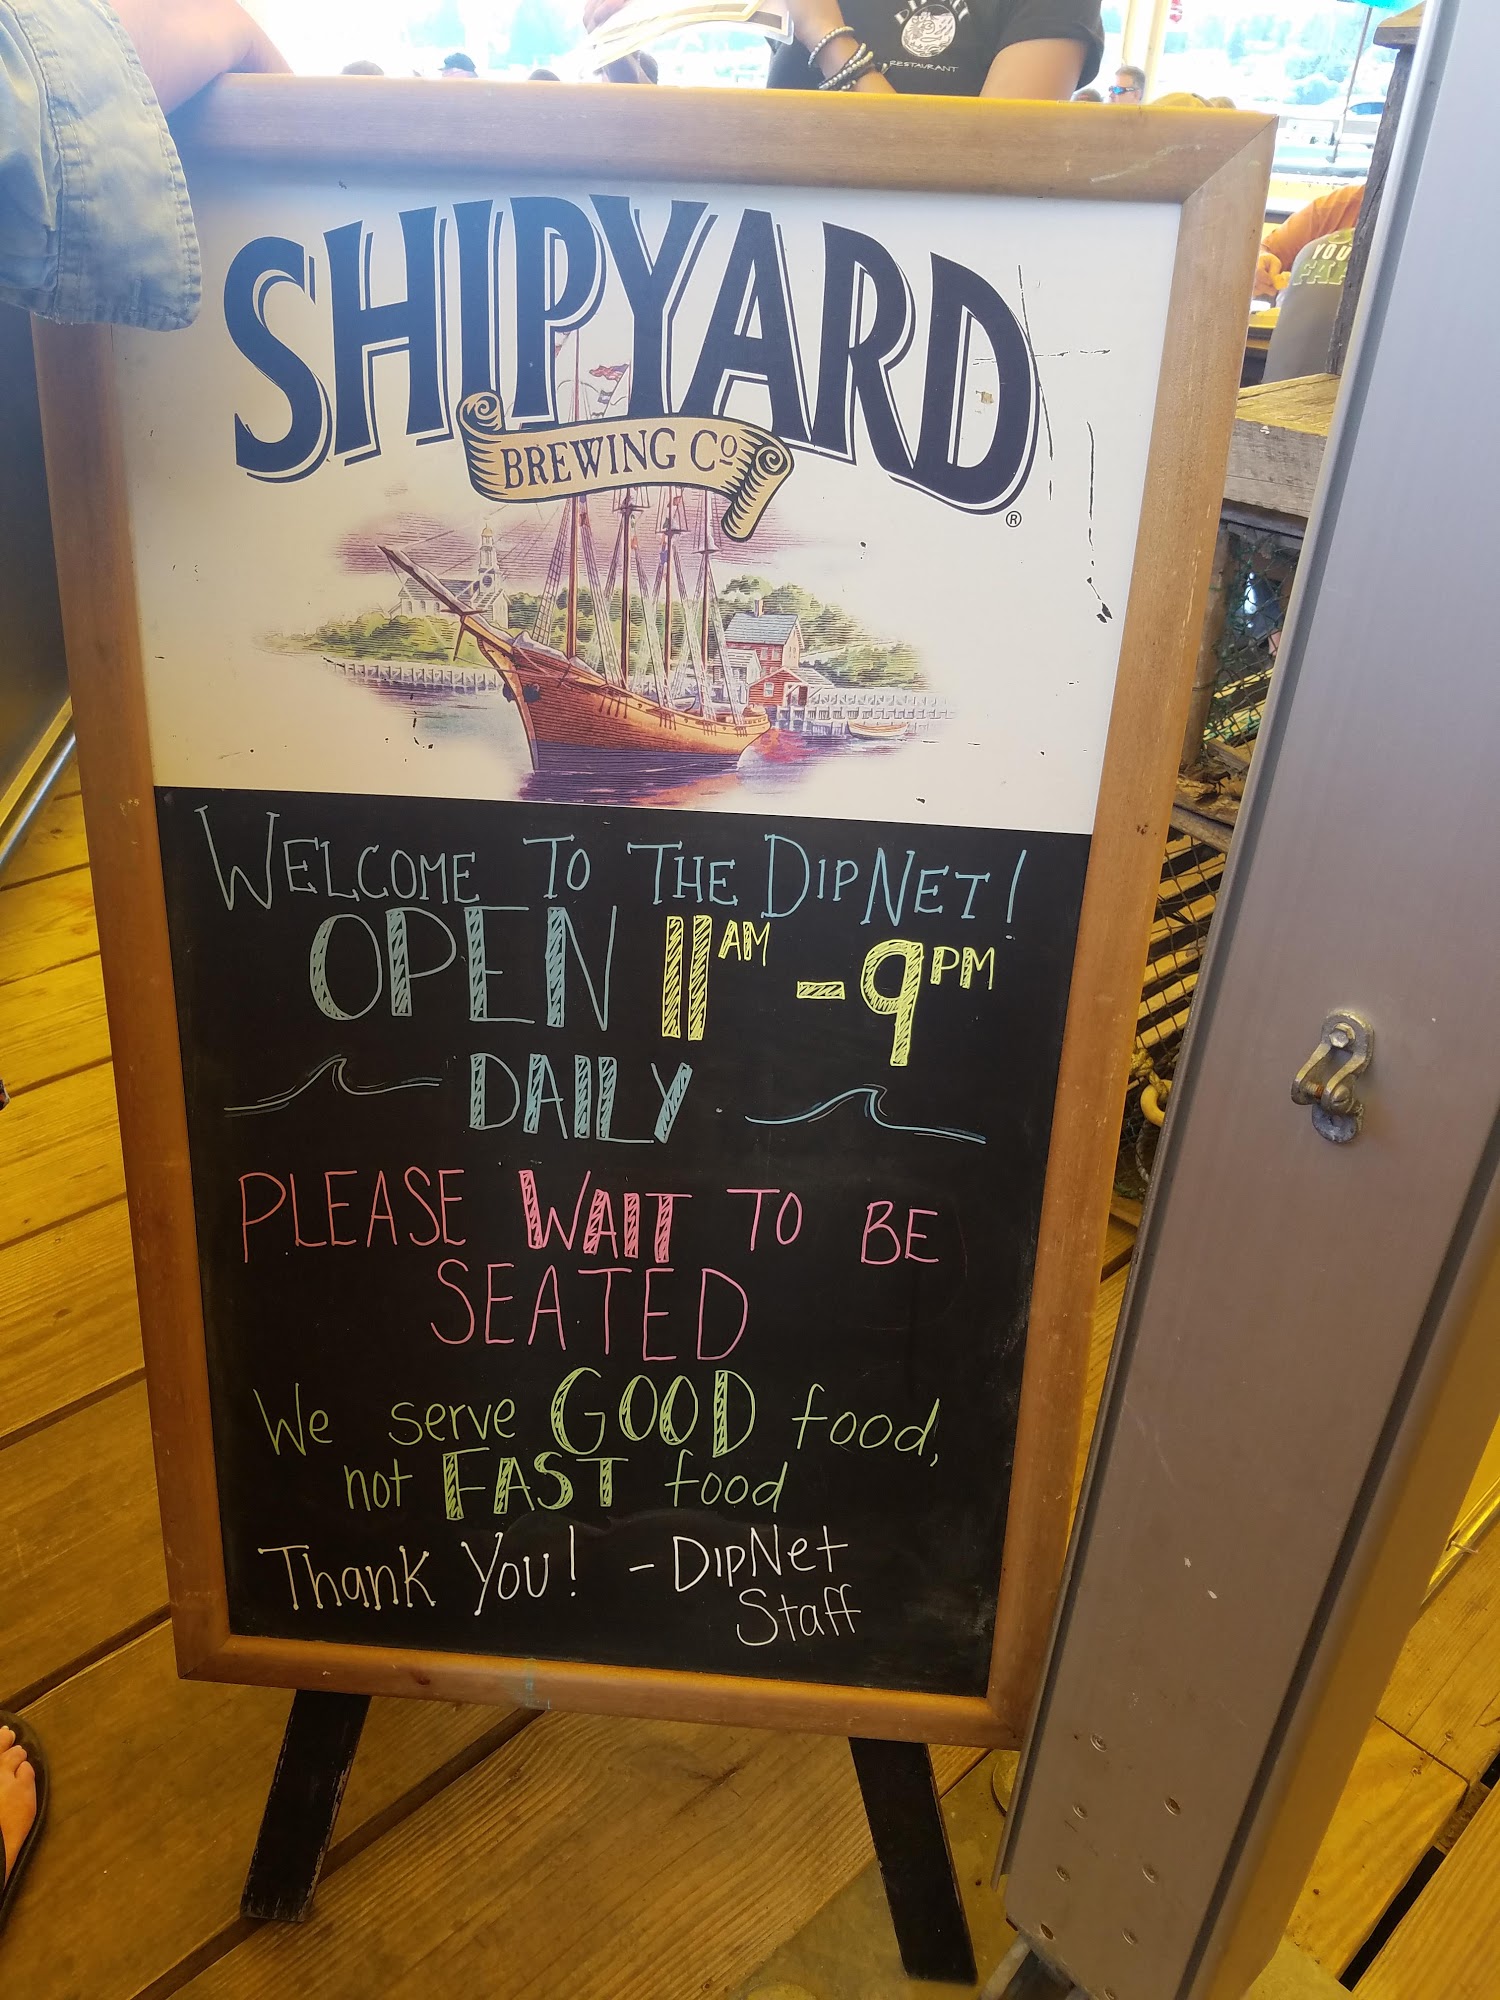 RESTAURANT
YOU
SHIPYARD
BREWING Co
®
WELCOME TO THE DIPNET!
OPEN 11AM - 9PM
DAILY
PLEASE WAIT TO BE
SEATED
We serve GOOD food,
not FAST food
Thank You! - DipNet
Staff